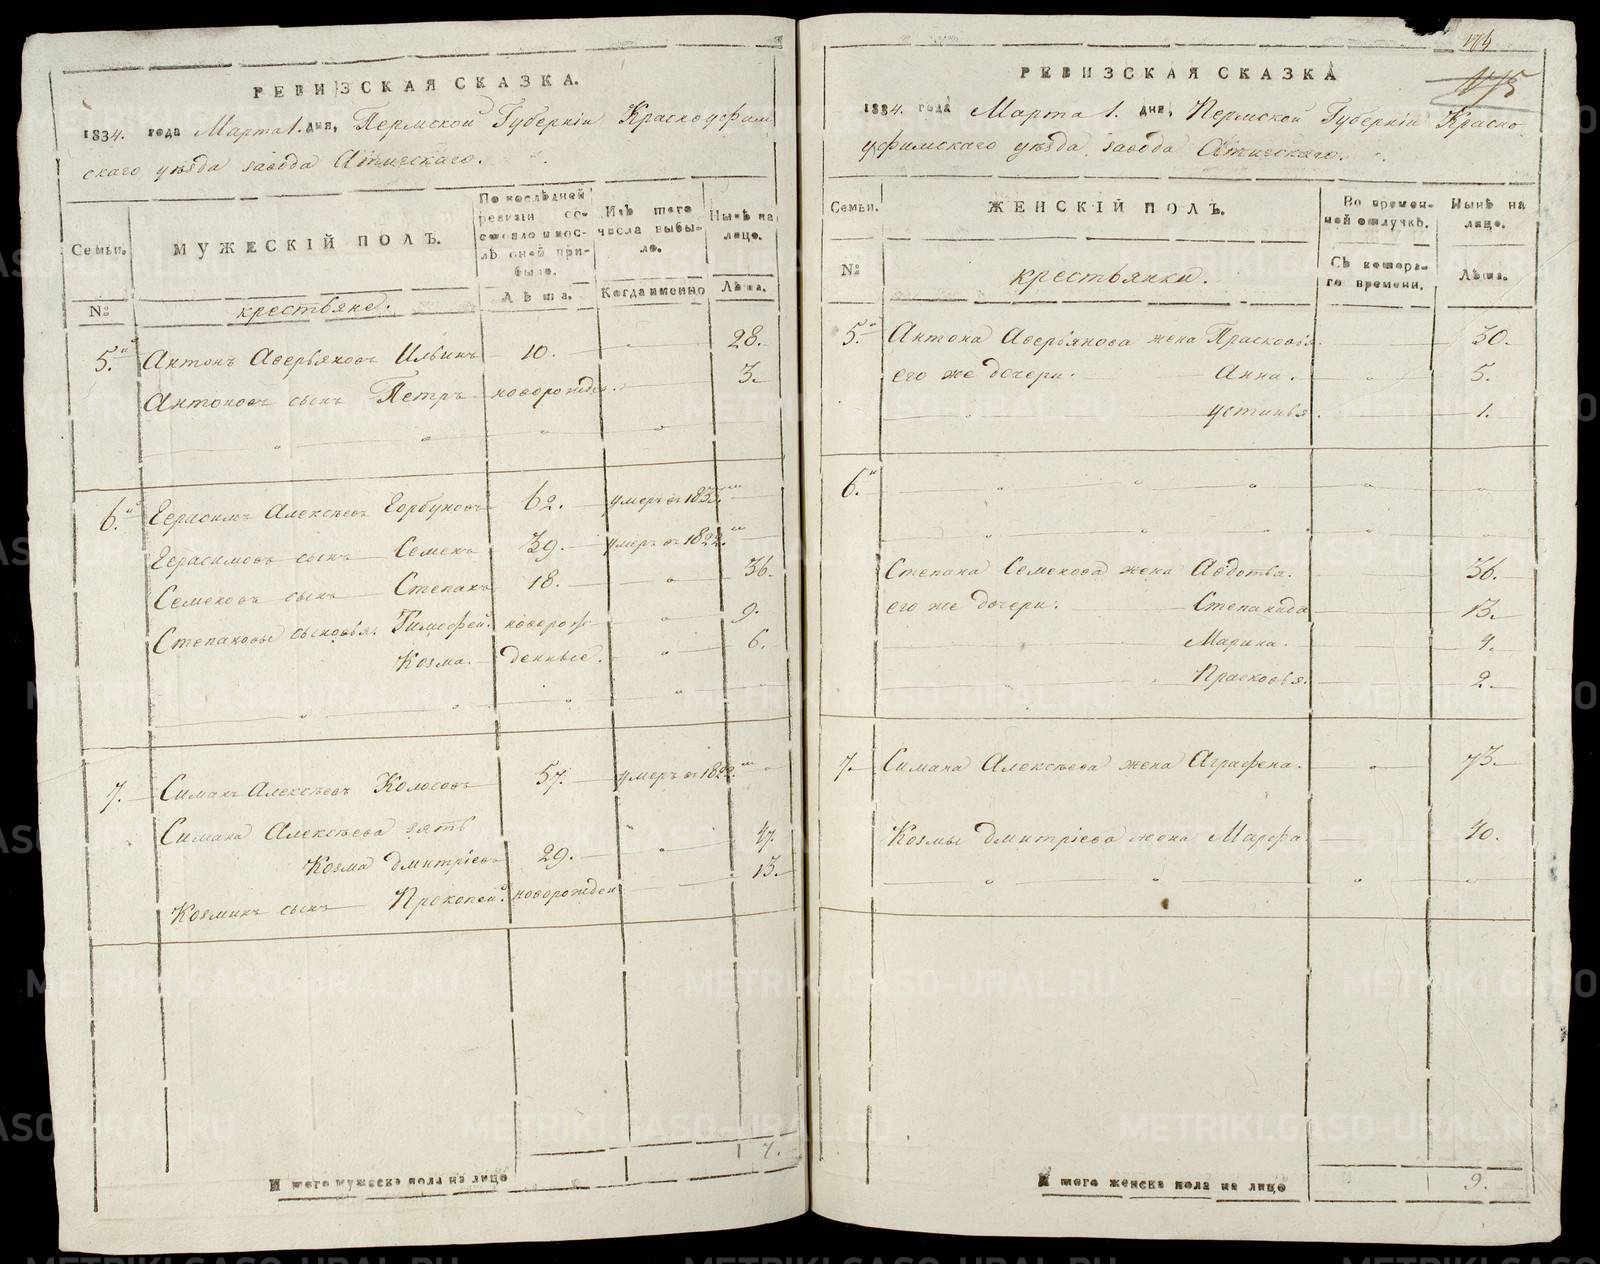 РЕВИЗСКАЯ СКАЗКА.
1834. года Марта 1. дня, Пермской Губернiи Красноуфим
скаго уѣзда завода Атигскаго.
Семьи.
МУЖЕСКIЙ ПОЛЪ.
По послѣдней ревизiи состояло и послѣ оной прибыло.
Изъ того числа выбыло.
Нынѣ на лицо.
№
крестьяне.
Лѣта.
Когда именно
Лѣта.
5.й Антонъ Аверьяновъ Ильинъ 10. 28.
Антоновъ сынъ Петръ новорожден. 3.
6.й Герасимъ Алексѣевъ Горбуновъ 62. умеръ въ 1833.
Герасимовъ сынъ Семенъ 39. умеръ въ 1822.
Семеновъ сынъ Степанъ 18. 36.
Степановы сыновья: Тимофей. новорож 9.
Козма. денные. 6.
7. Симанъ Алексѣевъ Колосовъ 57. умеръ въ 1822.
Симана Алексѣева зять
Козма Дмитрiевъ 29. 47.
Козминъ сынъ Прокопей. новорожден 13.
7.
И того мужеска пола на лицо
194
РЕВИЗСКАЯ СКАЗКА
1834. года Марта 1. дня, Пермской Губернiи Красно
уфимскаго уѣзда, завода Атигскаго.
Семьи.
ЖЕНСКIЙ ПОЛЪ.
Во временной отлучкѣ.
Нынѣ на лицо.
№
крестьянки.
Съ котораго времени.
Лѣта.
5.й Антона Аверьянова жена Прасковья. 30.
его же дочери. Анна. 5.
Устинья. 1.
6.й
Степана Семенова жена Авдотья. 36.
его же дочери: Степанида 13.
Марина. 4.
Прасковья. 2.
7. Симана Алексѣева жена Аграфена. 73.
Козмы Дмитрiева жена Марфа. 40.
И того женска пола на лицо 9.
METRIKI.GASO-URAL.RU